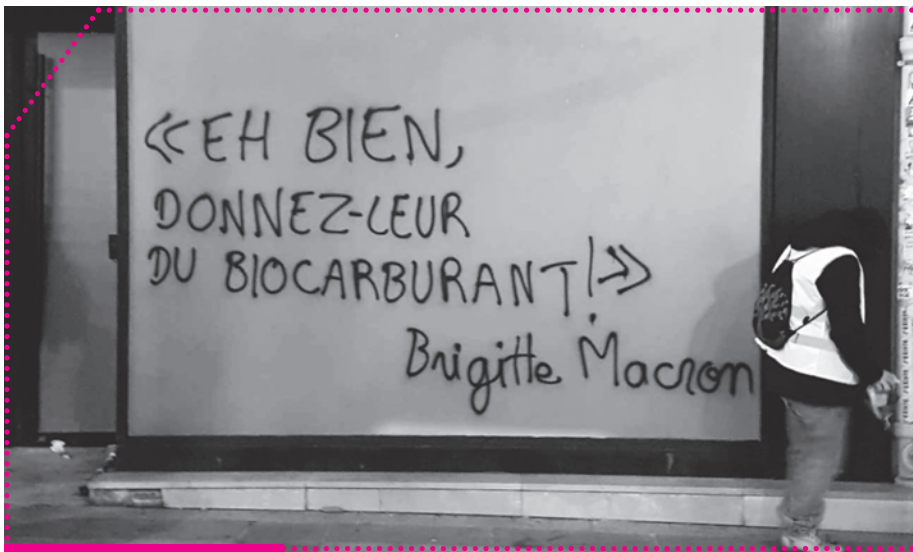 «EH BIEN,
DONNEZ-LEUR
DU BIOCARBURANT!»
Brigitte Macron